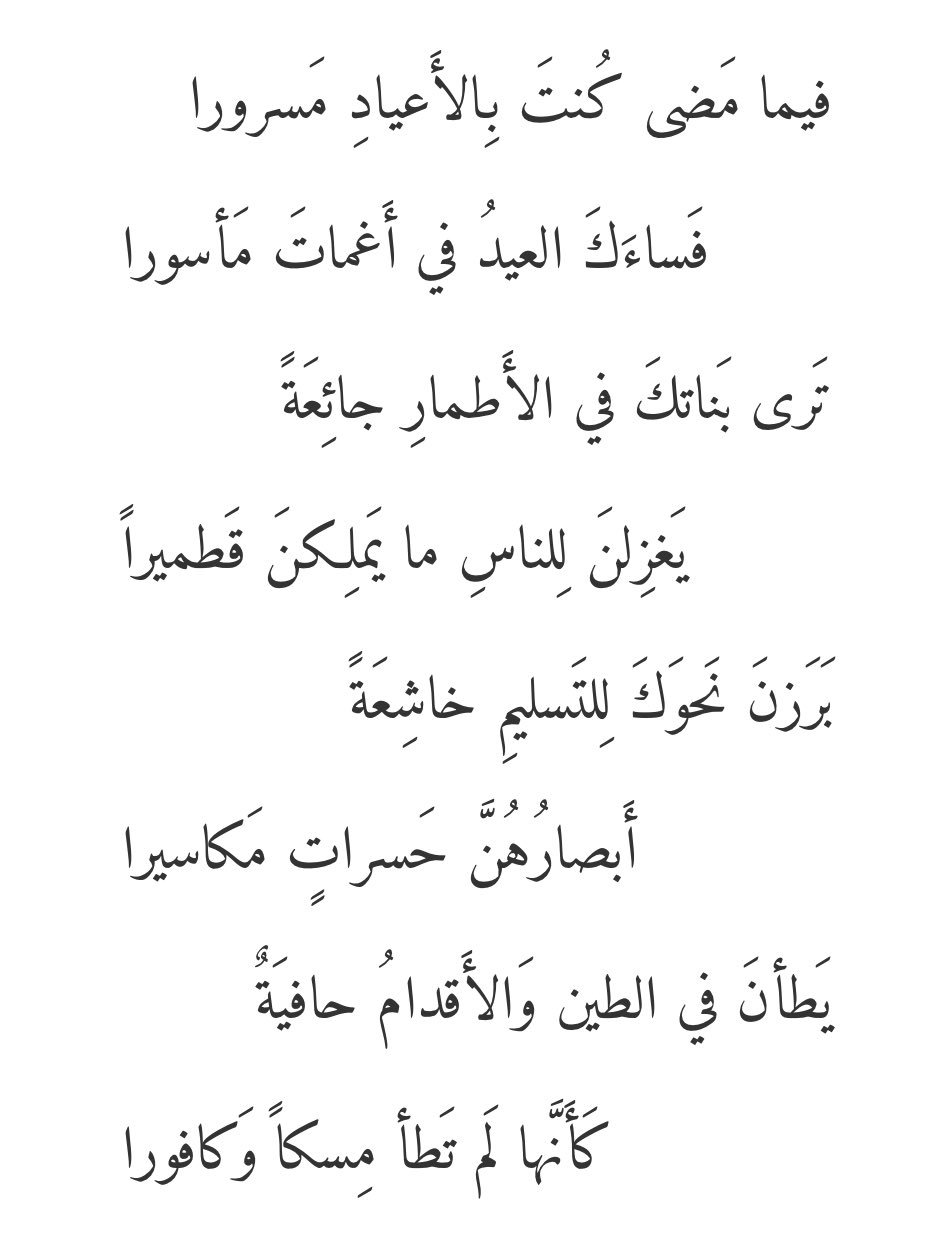 فيما مَضى كُنتَ بِالأَعيادِ مَسرورا
فَساءَكَ العيدُ في أَغماتَ مَأسورا
تَرى بَناتكَ في الأَطمارِ جائِعَةً
يَغزِلنَ لِلناسِ ما يَملِكنَ قَطميراً
بَرَزنَ نَحوَكَ لِلتَسليمِ خاشِعَةً
أَبصارُهُنَّ حَسراتٍ مَكاسيرا
يَطأنَ في الطين وَالأَقدامُ حافيَةٌ
كَأَنَّها لَم تَطأ مِسكاً وَكافورا